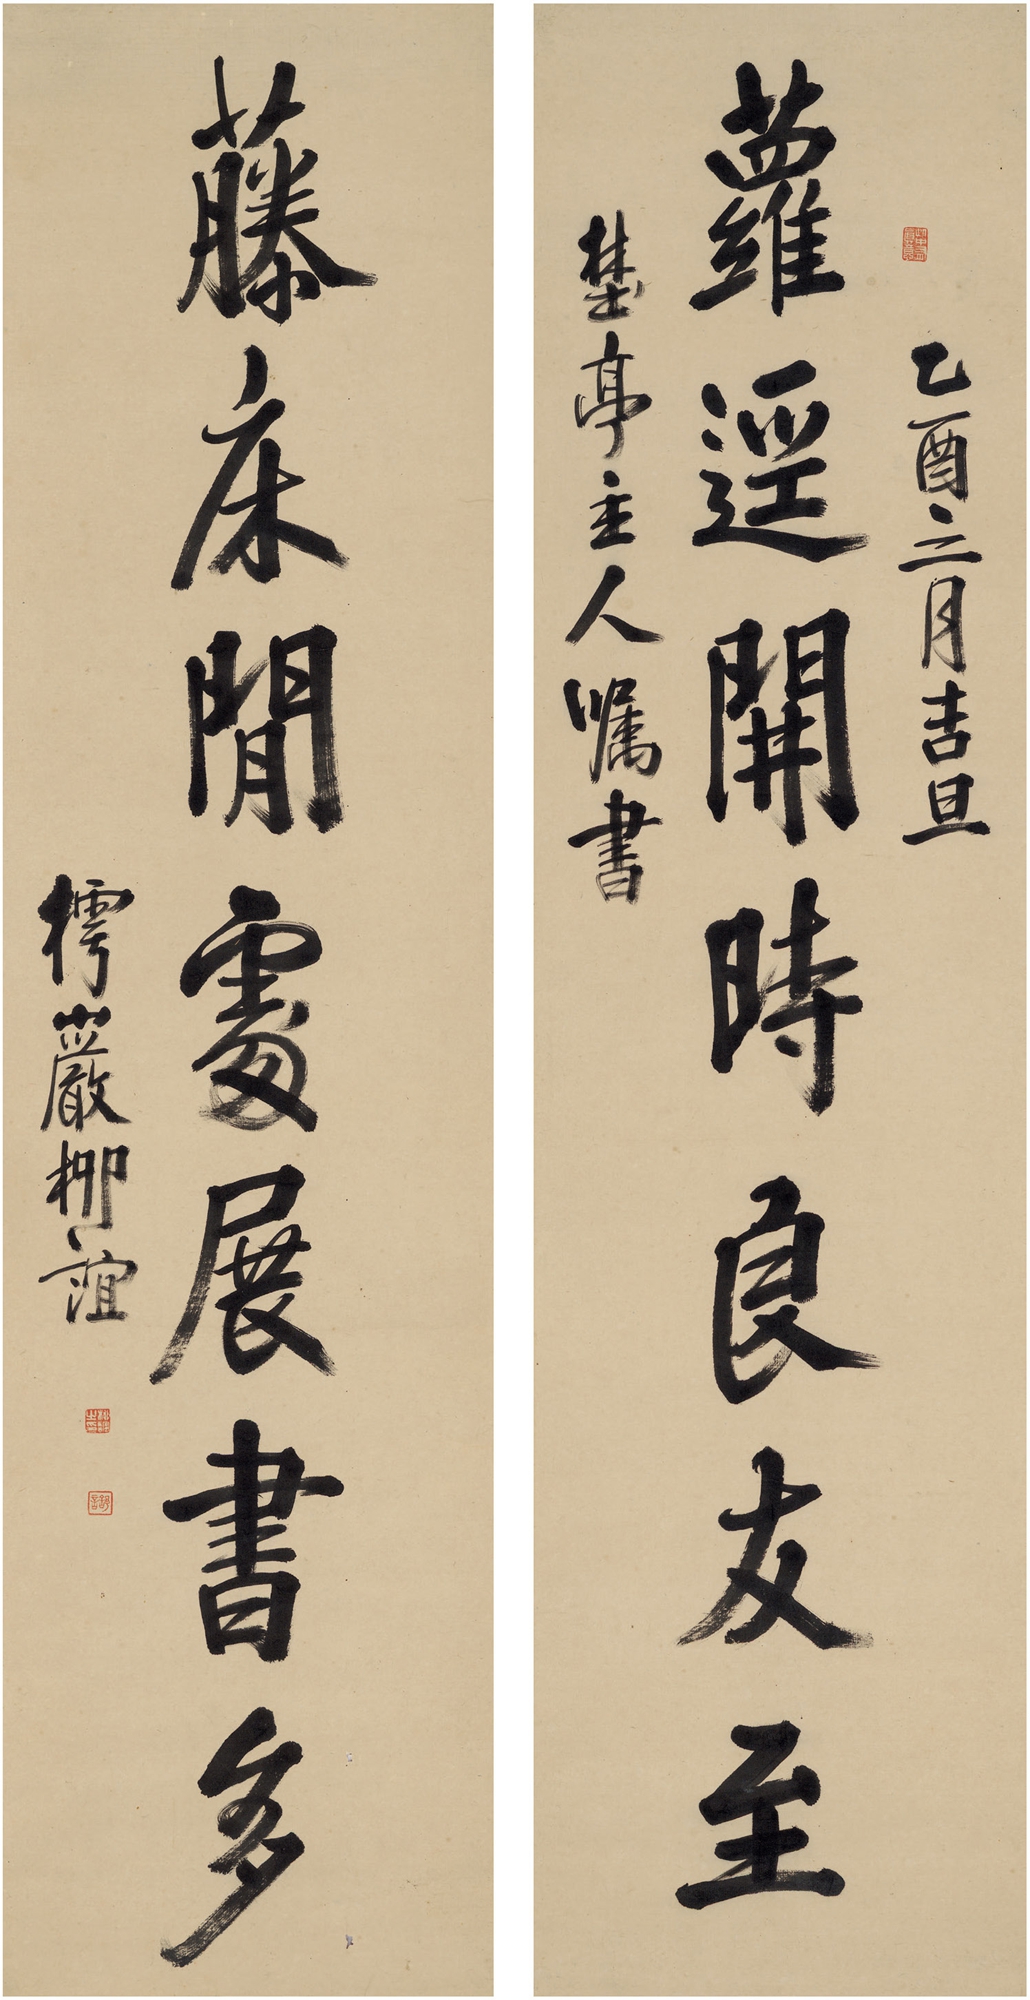 乙酉三月吉旦
蘿逕開時良友至
埜亭主人嘱書
藤床閒處展書多
樗巖柳誼